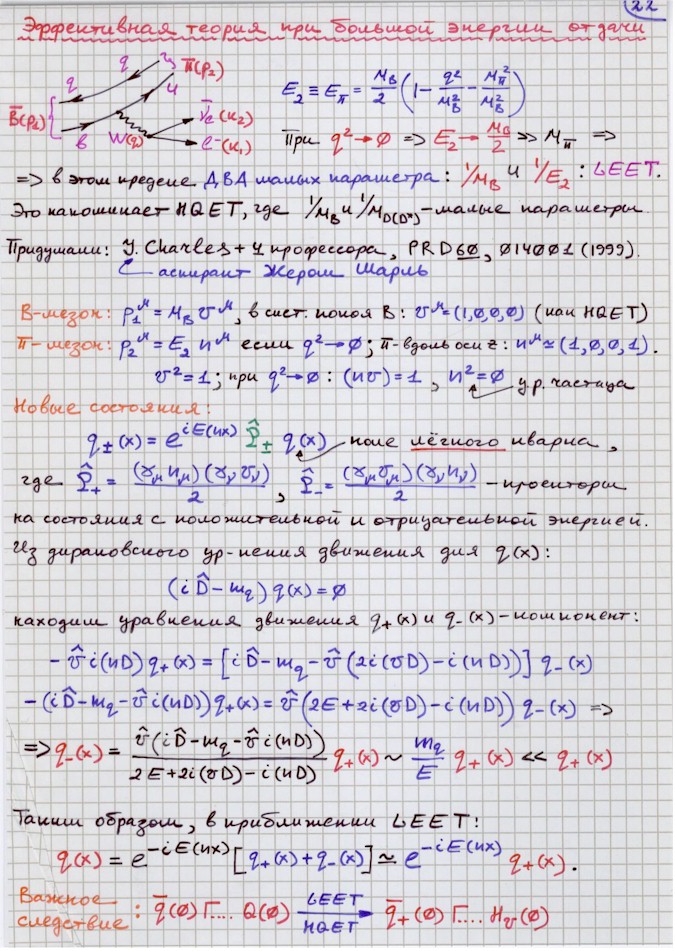 22
Эффективная теория при большой энергии отдачи
q q u π̄(p₂)
u
B̄(p₁)
b W(q) ν̄e(k₂)
e⁻(k₁)
E₂ ≡ E_π = M_B/2 (1 - q²/M_B² - M_π²/M_B²)
При q² → 0 => E₂ → M_B/2 >> M_π =>
=> в этом пределе ДВА малых параметра: 1/M_B и 1/E₂ : LEET.
Это напоминает HQET, где 1/M_B и 1/M_D(D*) - малые параметры.
Придумали: J. Charles + 4 профессора, PRD60, 014001 (1999).
аспирант Жером Шарль
B-мезон: p₁^μ = M_B v^μ, в сист. покоя B: v^μ = (1,0,0,0) (как HQET)
π-мезон: p₂^μ = E₂ n^μ если q² → 0; π-вдоль оси z: n^μ ≃ (1,0,0,1).
v² = 1; при q² → 0: (nv) = 1, n² = 0
у.р. частица
Новые состояния:
q±(x) = e^{iE(nx)} P̂± q(x) поле лёгкого кварка,
где P̂₊ = (γ_μ n_μ)(γ_ν v_ν)/2, P̂₋ = (γ_μ v_μ)(γ_ν n_ν)/2 - проекторы
на состояния с положительной и отрицательной энергией.
Из дираковского ур-нения движения для q(x):
(i D̂ - m_q) q(x) = 0
находим уравнения движения q₊(x) и q₋(x) - компонент:
- v̂ i(nD) q₊(x) = [i D̂ - m_q - v̂ (2i(vD) - i(nD))] q₋(x)
-(i D̂ - m_q - v̂ i(nD)) q₊(x) = v̂ (2E + 2i(vD) - i(nD)) q₋(x) =>
=> q₋(x) = v̂ (i D̂ - m_q - v̂ i(nD)) / (2E + 2i(vD) - i(nD)) q₊(x) ~ m_q/E q₊(x) << q₊(x)
Таким образом, в приближении LEET:
q(x) = e^{-iE(nx)} [q₊(x) + q₋(x)] ≃ e^{-iE(nx)} q₊(x).
Важное
следствие : q̄(0) Γ.... Q(0) LEET → HQET q̄₊(0) Γ.... H_v(0)